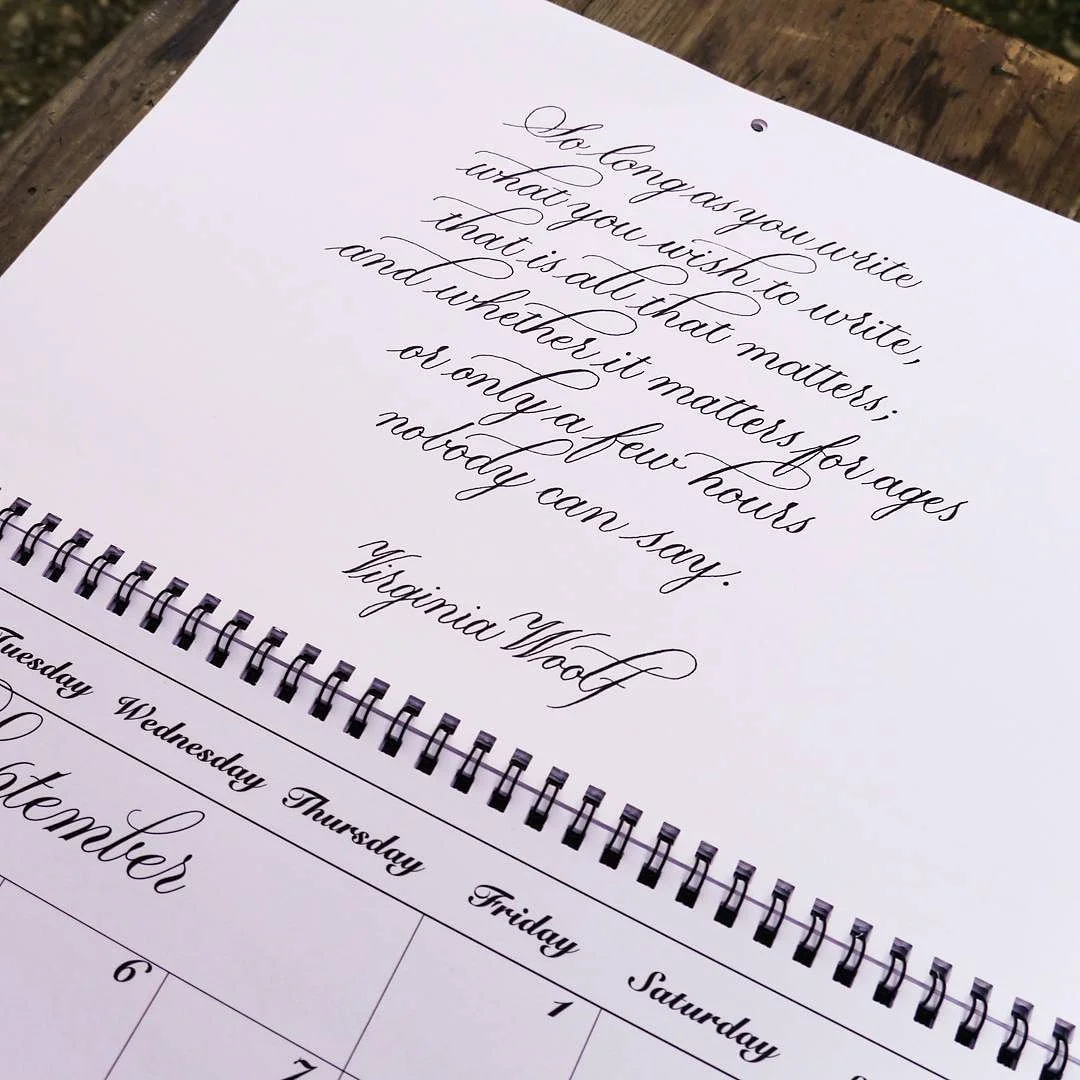 So long as you write
what you wish to write,
that is all that matters;
and whether it matters for ages
or only a few hours
nobody can say.
Virginia Woolf
Tuesday Wednesday Thursday Friday Saturday
1
6
7